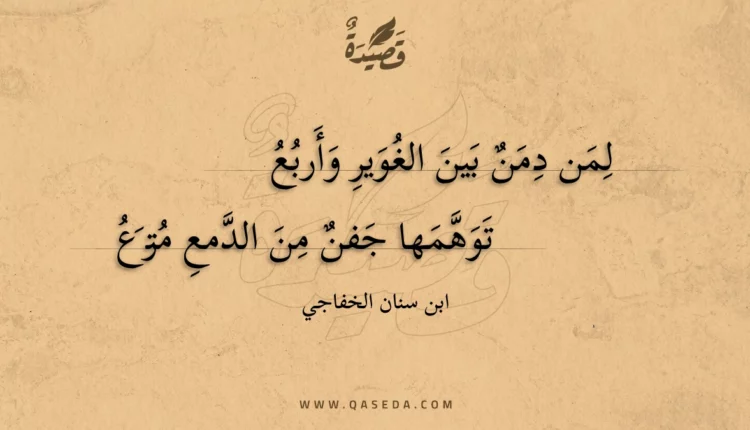 قَصِيْدَةٌ
لِمَن دِمَنٌ بَينَ الغُوَيرِ وَأَربُعُ
تَوَهَّمَها جَفنٌ مِنَ الدَّمعِ مُترَعُ
ابن سنان الخفاجي
WWW.QASEDA.COM